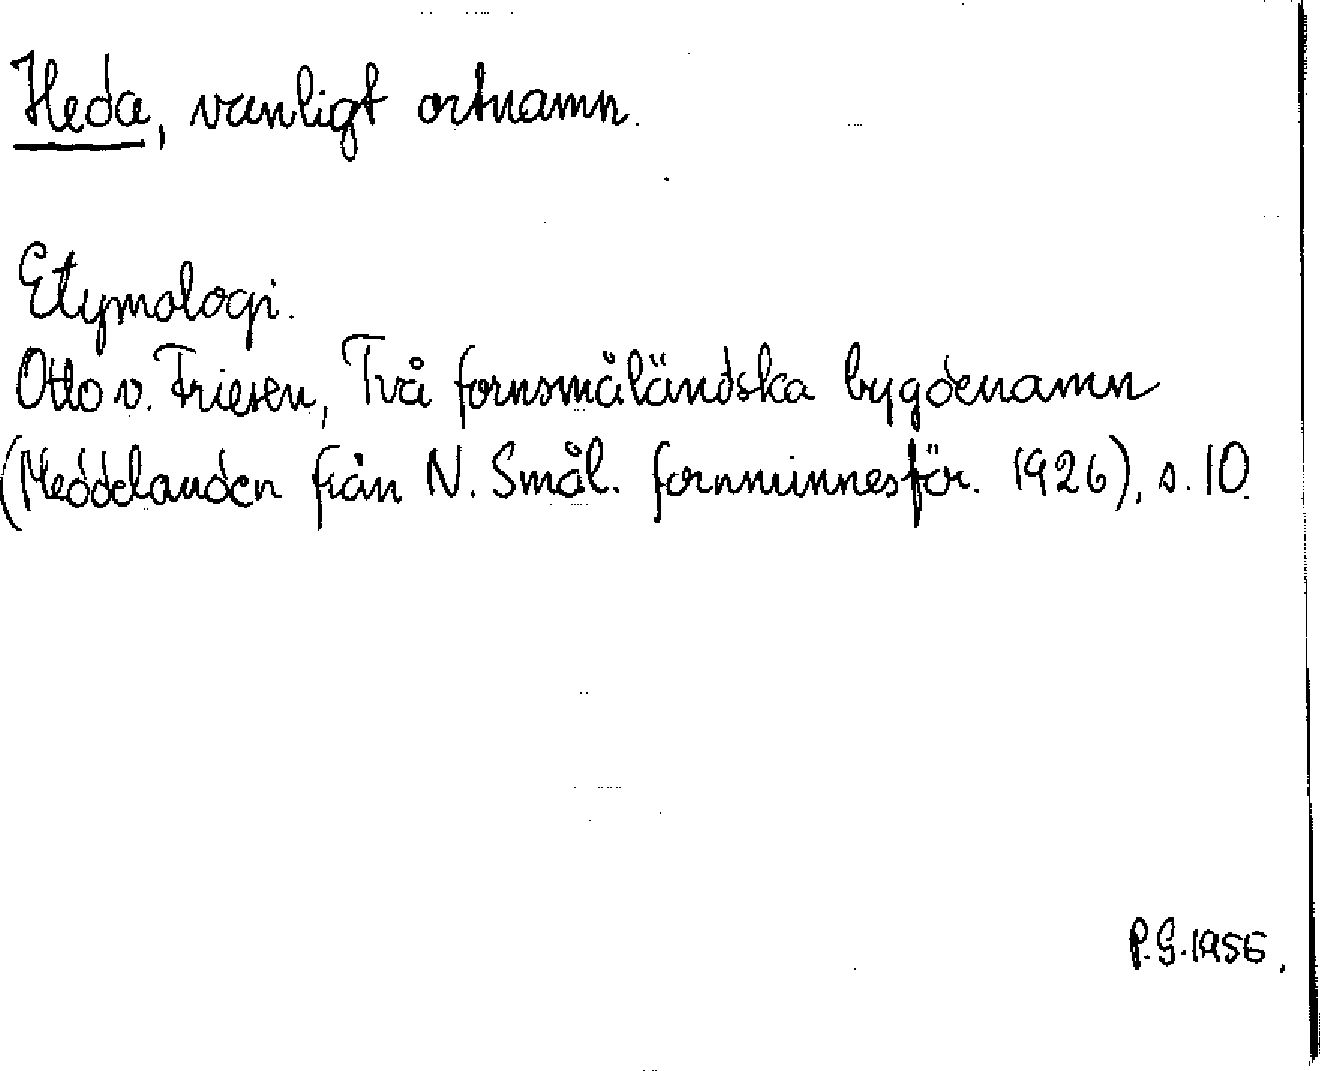 Heda, vanligt ortnamn.
Etymologi.
Otto v. Friesen, Två fornsmåländska bygdenamn
(Meddelanden från N. Smål. fornminnesför. 1926), s. 10.
P.G. 1956.